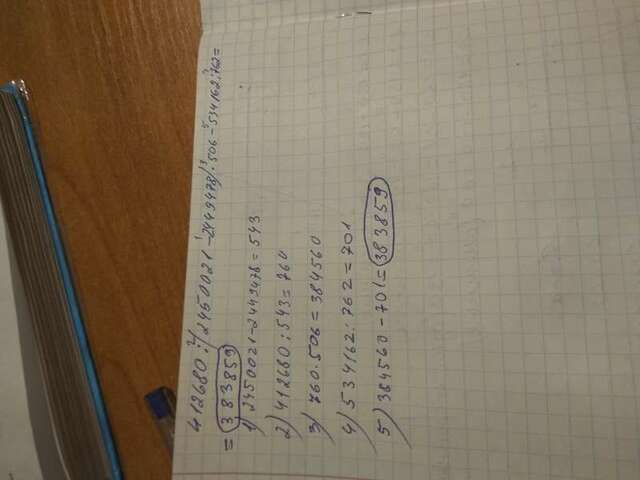 412680:(2450021-2449478)·506-534162:762=
=383859
1) 2450021-2449478=543
2) 412680:543=760
3) 760·506=384560
4) 534162:762=701
5) 384560-701=383859